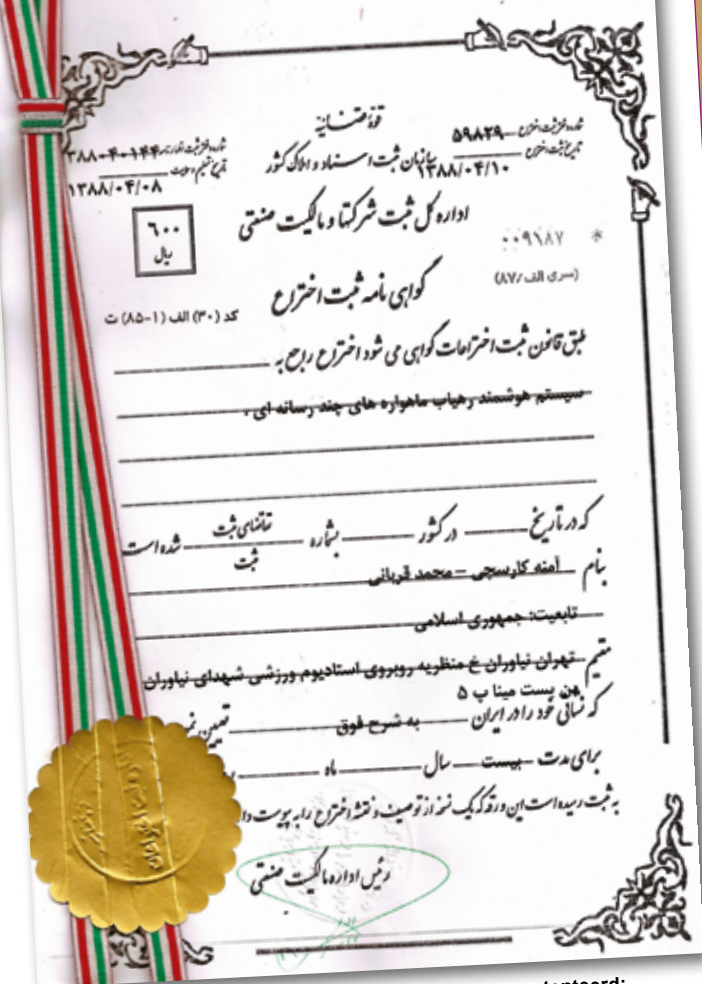 قوه قضائیه
شماره دفتر ثبت اختراع ۵۹۸۲۹
تاریخ ثبت اختراع ۱۳۸۸/۰۴/۱۰
سازمان ثبت اسناد و املاک کشور
شماره دفتر ثبت اظهارنامه ۳۸۸۰۴۰۱۴۴
تاریخ تسلیم اظهارنامه ۱۳۸۸/۰۴/۰۸
اداره کل ثبت شرکتها و مالکیت صنعتی
۶۰۰
ریال
۰۰۹۱۸۷ *
(سری الف/۸۷)
گواهی نامه ثبت اختراع
کد (۳۰) الف (۱-۸۵) ت
طبق قانون ثبت اختراعات گواهی می شود اختراع راجع به
سیستم هوشمند رهیاب ماهواره های چند رسانه ای .
که در تاریخ در کشور بشماره تقاضای ثبت شده است
ثبت
بنام آمنه کارسجی – محمد قربانی
تابعیت: جمهوری اسلامی
مقیم تهران نیاوران خ منظریه روبروی استادیوم ورزشی شهدای نیاوران
بن بست مینا پ ۵
که نشانی خود را در ایران به شرح فوق تعیین
برای مدت بیست سال ماه
به ثبت رسیده است این ورقه که یک نسخه از توصیف و نقشه اختراع را به پیوست
رئیس اداره مالکیت صنعتی